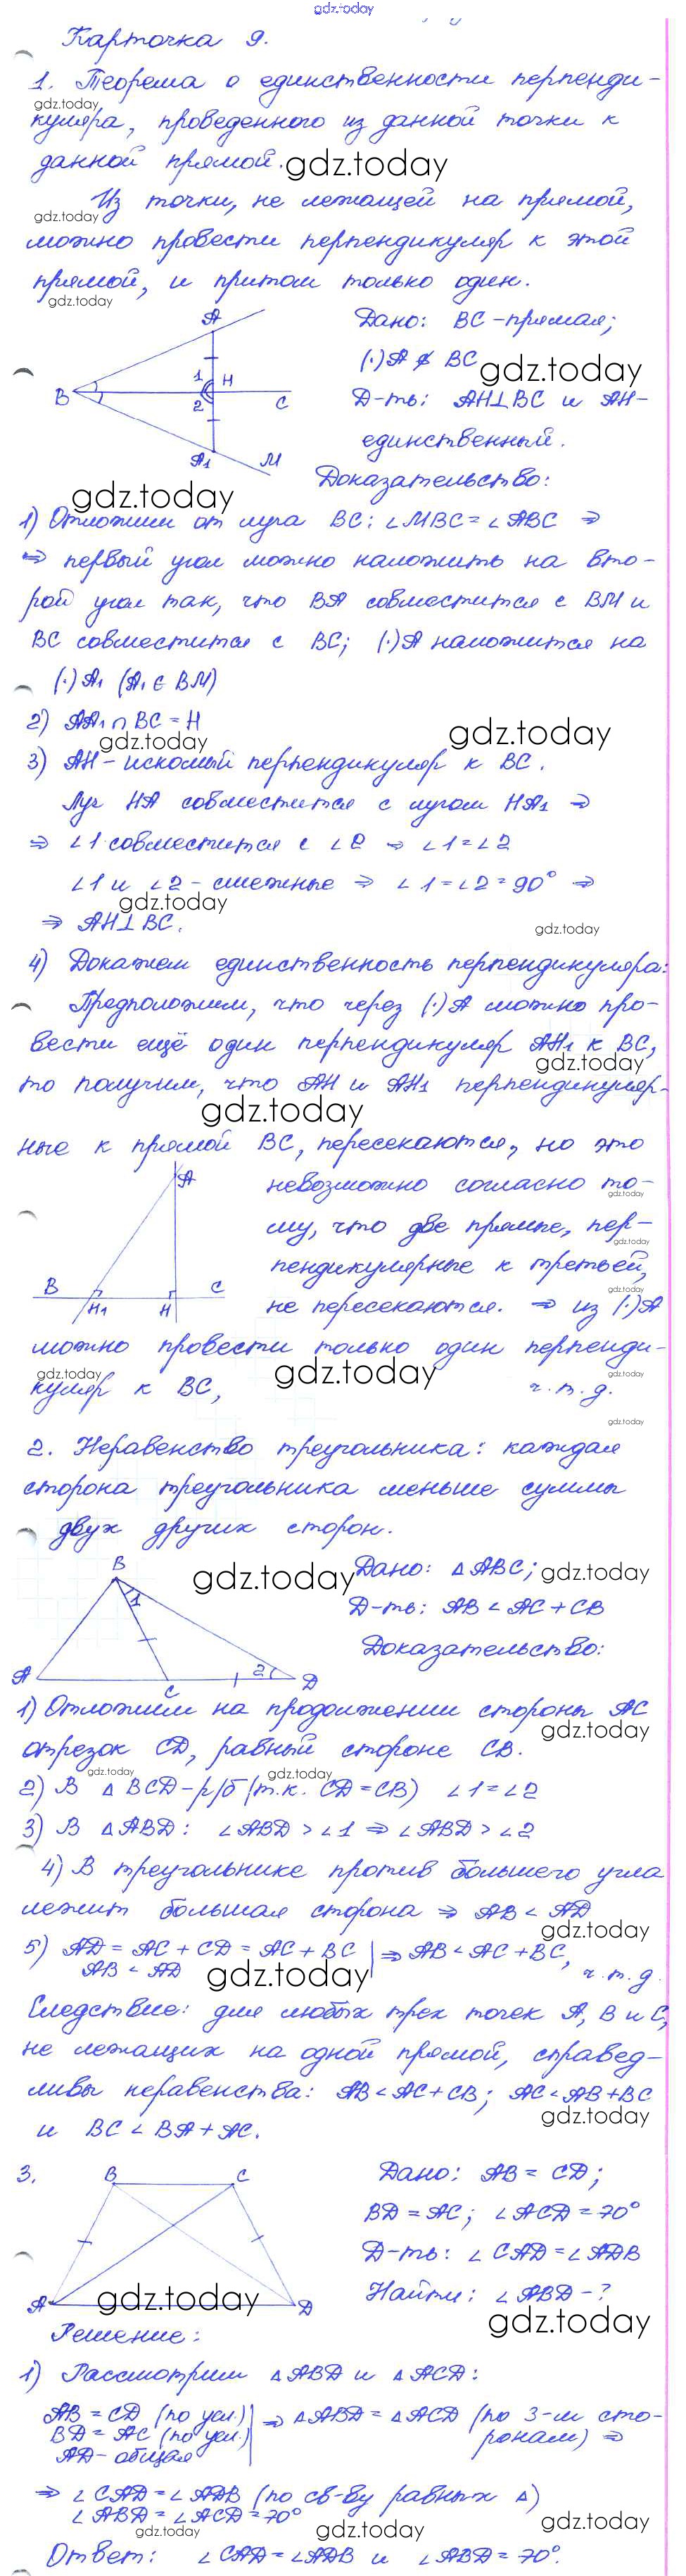 gdz.today
Карточка 9.
1. Теорема о единственности перпенди-
gdz.today
куляра, проведенного из данной точки к
данной прямой.
gdz.today
Из точки, не лежащей на прямой,
gdz.today
можно провести перпендикуляр к этой
прямой, и притом только один.
gdz.today
A
1
H
B
2
C
A₁
M
Дано: BC-прямая;
(·)A ∉ BC
gdz.today
Д-ть: AH⊥BC и AH-
единственный.
Доказательство:
gdz.today
1) Отложим от луча BC: ∠MBC = ∠ABC ⇒
⇒ первый угол можно наложить на вто-
рой угол так, что BA совместится с BM и
BC совместится с BC; (·)A наложится на
(·)A₁ (A₁ ∈ BM)
2) AA₁ ∩ BC = H
gdz.today
gdz.today
3) AH - искомый перпендикуляр к BC.
Луч HA совместится с лучом HA₁ ⇒
⇒ ∠1 совместится с ∠2 ⇒ ∠1 = ∠2
∠1 и ∠2 - смежные ⇒ ∠1 = ∠2 = 90° ⇒
gdz.today
⇒ AH⊥BC.
gdz.today
4) Докажем единственность перпендикуляра:
Предположим, что через (·)A можно про-
вести ещё один перпендикуляр AH₁ к BC,
gdz.today
то получим, что AH и AH₁ перпендикуляр-
gdz.today
ные к прямой BC, пересекаются, но это
A
B
H₁
H
C
невозможно согласно то-
gdz.today
му, что две прямые, пер-
gdz.today
пендикулярные к третьей,
gdz.today
не пересекаются. ⇒ из (·)A
можно провести только один перпенди-
gdz.today
gdz.today
gdz.today
куляр к BC,
ч.т.д.
gdz.today
2. Неравенство треугольника: каждая
сторона треугольника меньше суммы
двух других сторон.
B
1
A
C
2
D
gdz.today
Дано: △ABC;
gdz.today
Д-ть: AB < AC + CB
Доказательство:
1) Отложим на продолжении стороны AC
gdz.today
отрезок CD, равный стороне CB.
gdz.today
gdz.today
2) В △BCD - р/б (т.к. CD = CB) ∠1 = ∠2
3) В △ABD: ∠ABD > ∠1 ⇒ ∠ABD > ∠2
4) В треугольнике против большего угла
лежит большая сторона ⇒ AB < AD
gdz.today
5) AD = AC + CD = AC + BC | ⇒ AB < AC + BC,
AB < AD
gdz.today
ч.т.д.
Следствие: для любых трех точек A, B и C,
не лежащих на одной прямой, справед-
ливы неравенства: AB < AC + CB; AC < AB + BC
gdz.today
и BC < BA + AC.
3.
B
C
A
D
gdz.today
Дано: AB = CD;
BD = AC; ∠ACD = 70°
Д-ть: ∠CAD = ∠ADB
Найти: ∠ABD - ?
gdz.today
Решение:
1) Рассмотрим △ABD и △ACD:
AB = CD (по усл.) | ⇒ △ABD = △ACD (по 3-м сто-
BD = AC (по усл.) | ронам) ⇒
AD - общая
⇒ ∠CAD = ∠ADB (по св-ву равных △)
∠ABD = ∠ACD = 70°
gdz.today
gdz.today
gdz.today
Ответ: ∠CAD = ∠ADB и ∠ABD = 70°.